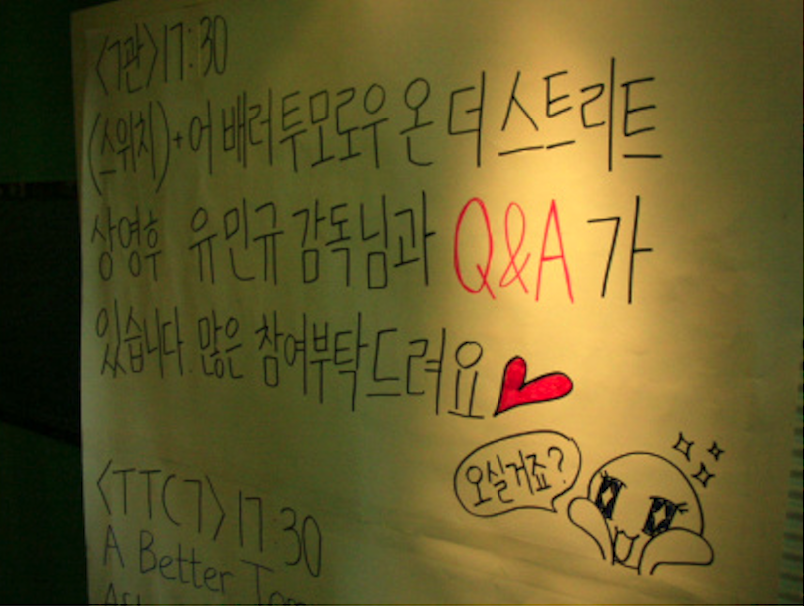 <7관>17:30
(스위치)+어 배러 투모로우 온 더 스트리트
상영후 유민규 감독님과 Q&A 가
있습니다. 많은 참여부탁드려요
오실거죠?
<TTC7> 17:30
A Better Tom